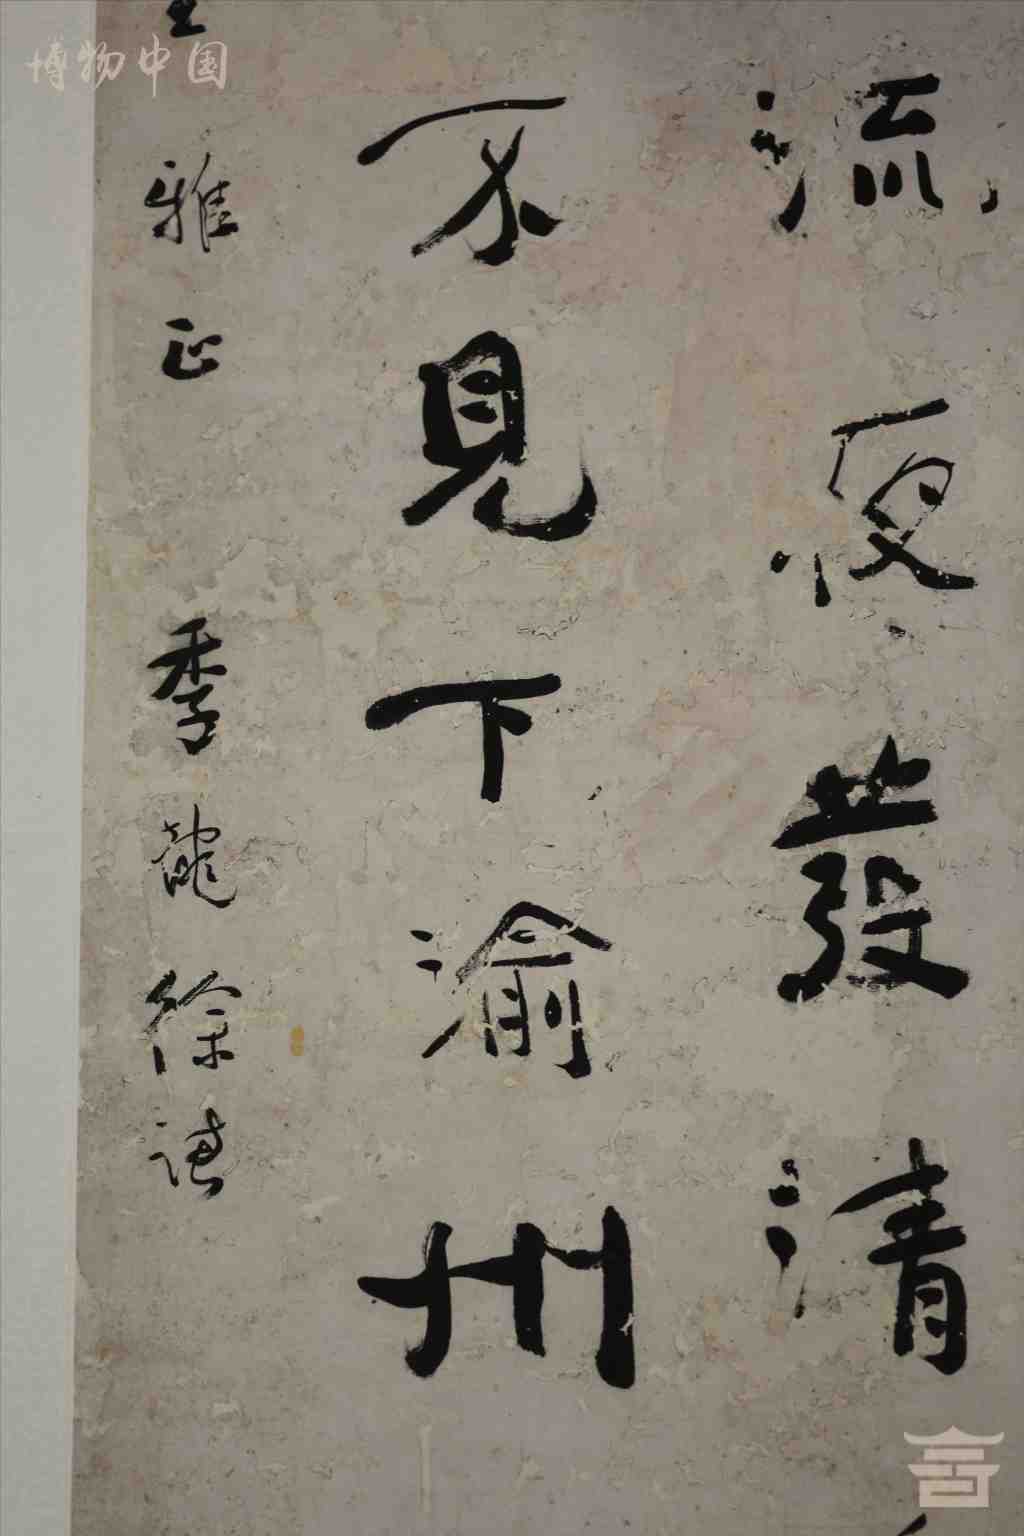 流夜發清
不見下渝州
雅正 季龍徐謙
博物中国